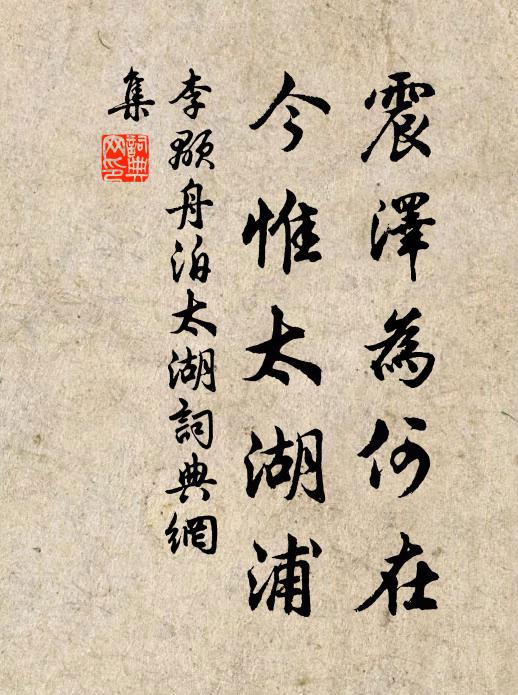 震澤為何在
今惟太湖浦
李顒舟泊太湖詞典網
集
詞典